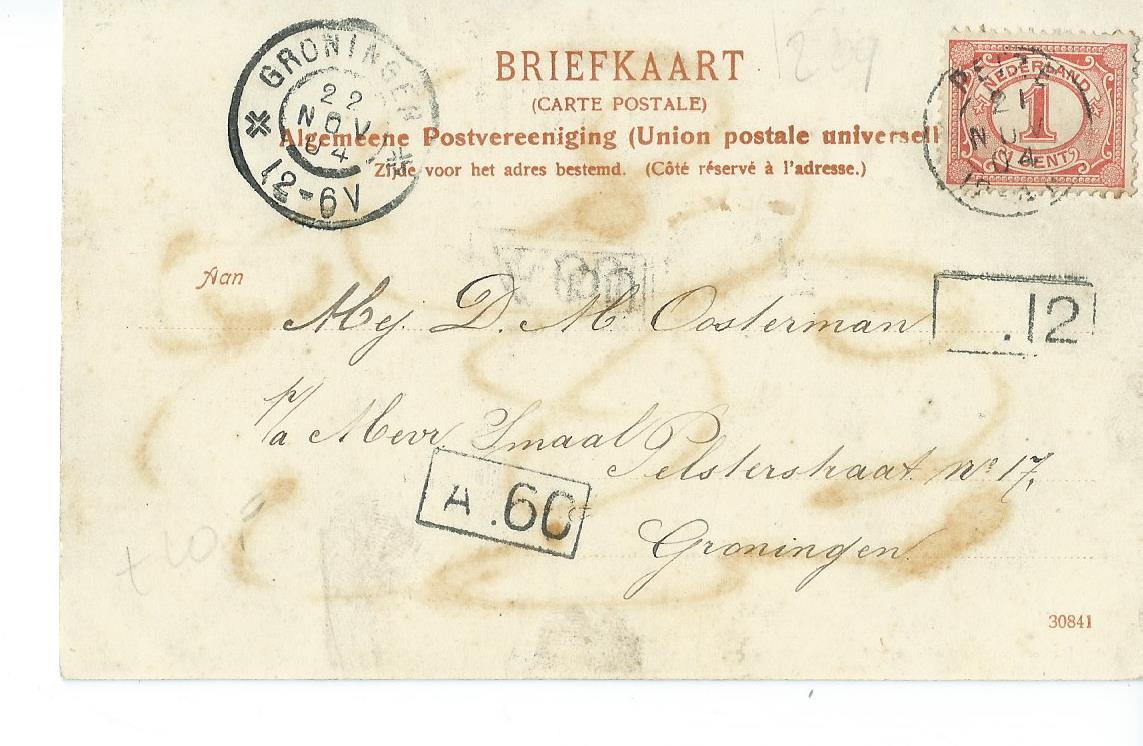 GRONINGEN
22
NOV
04
12-6V
BRIEFKAART
(CARTE POSTALE)
Algemeene Postvereeniging (Union postale universell
Zijde voor het adres bestemd. (Côté réservé à l'adresse.)
NEDERLAND
1
CENT
21
NOV
04
Aan
Mej. D. M. Oosterman
.12
p/a Mevr. Smaal
Pelsterstraat no 17,
A.60
Groningen
30841